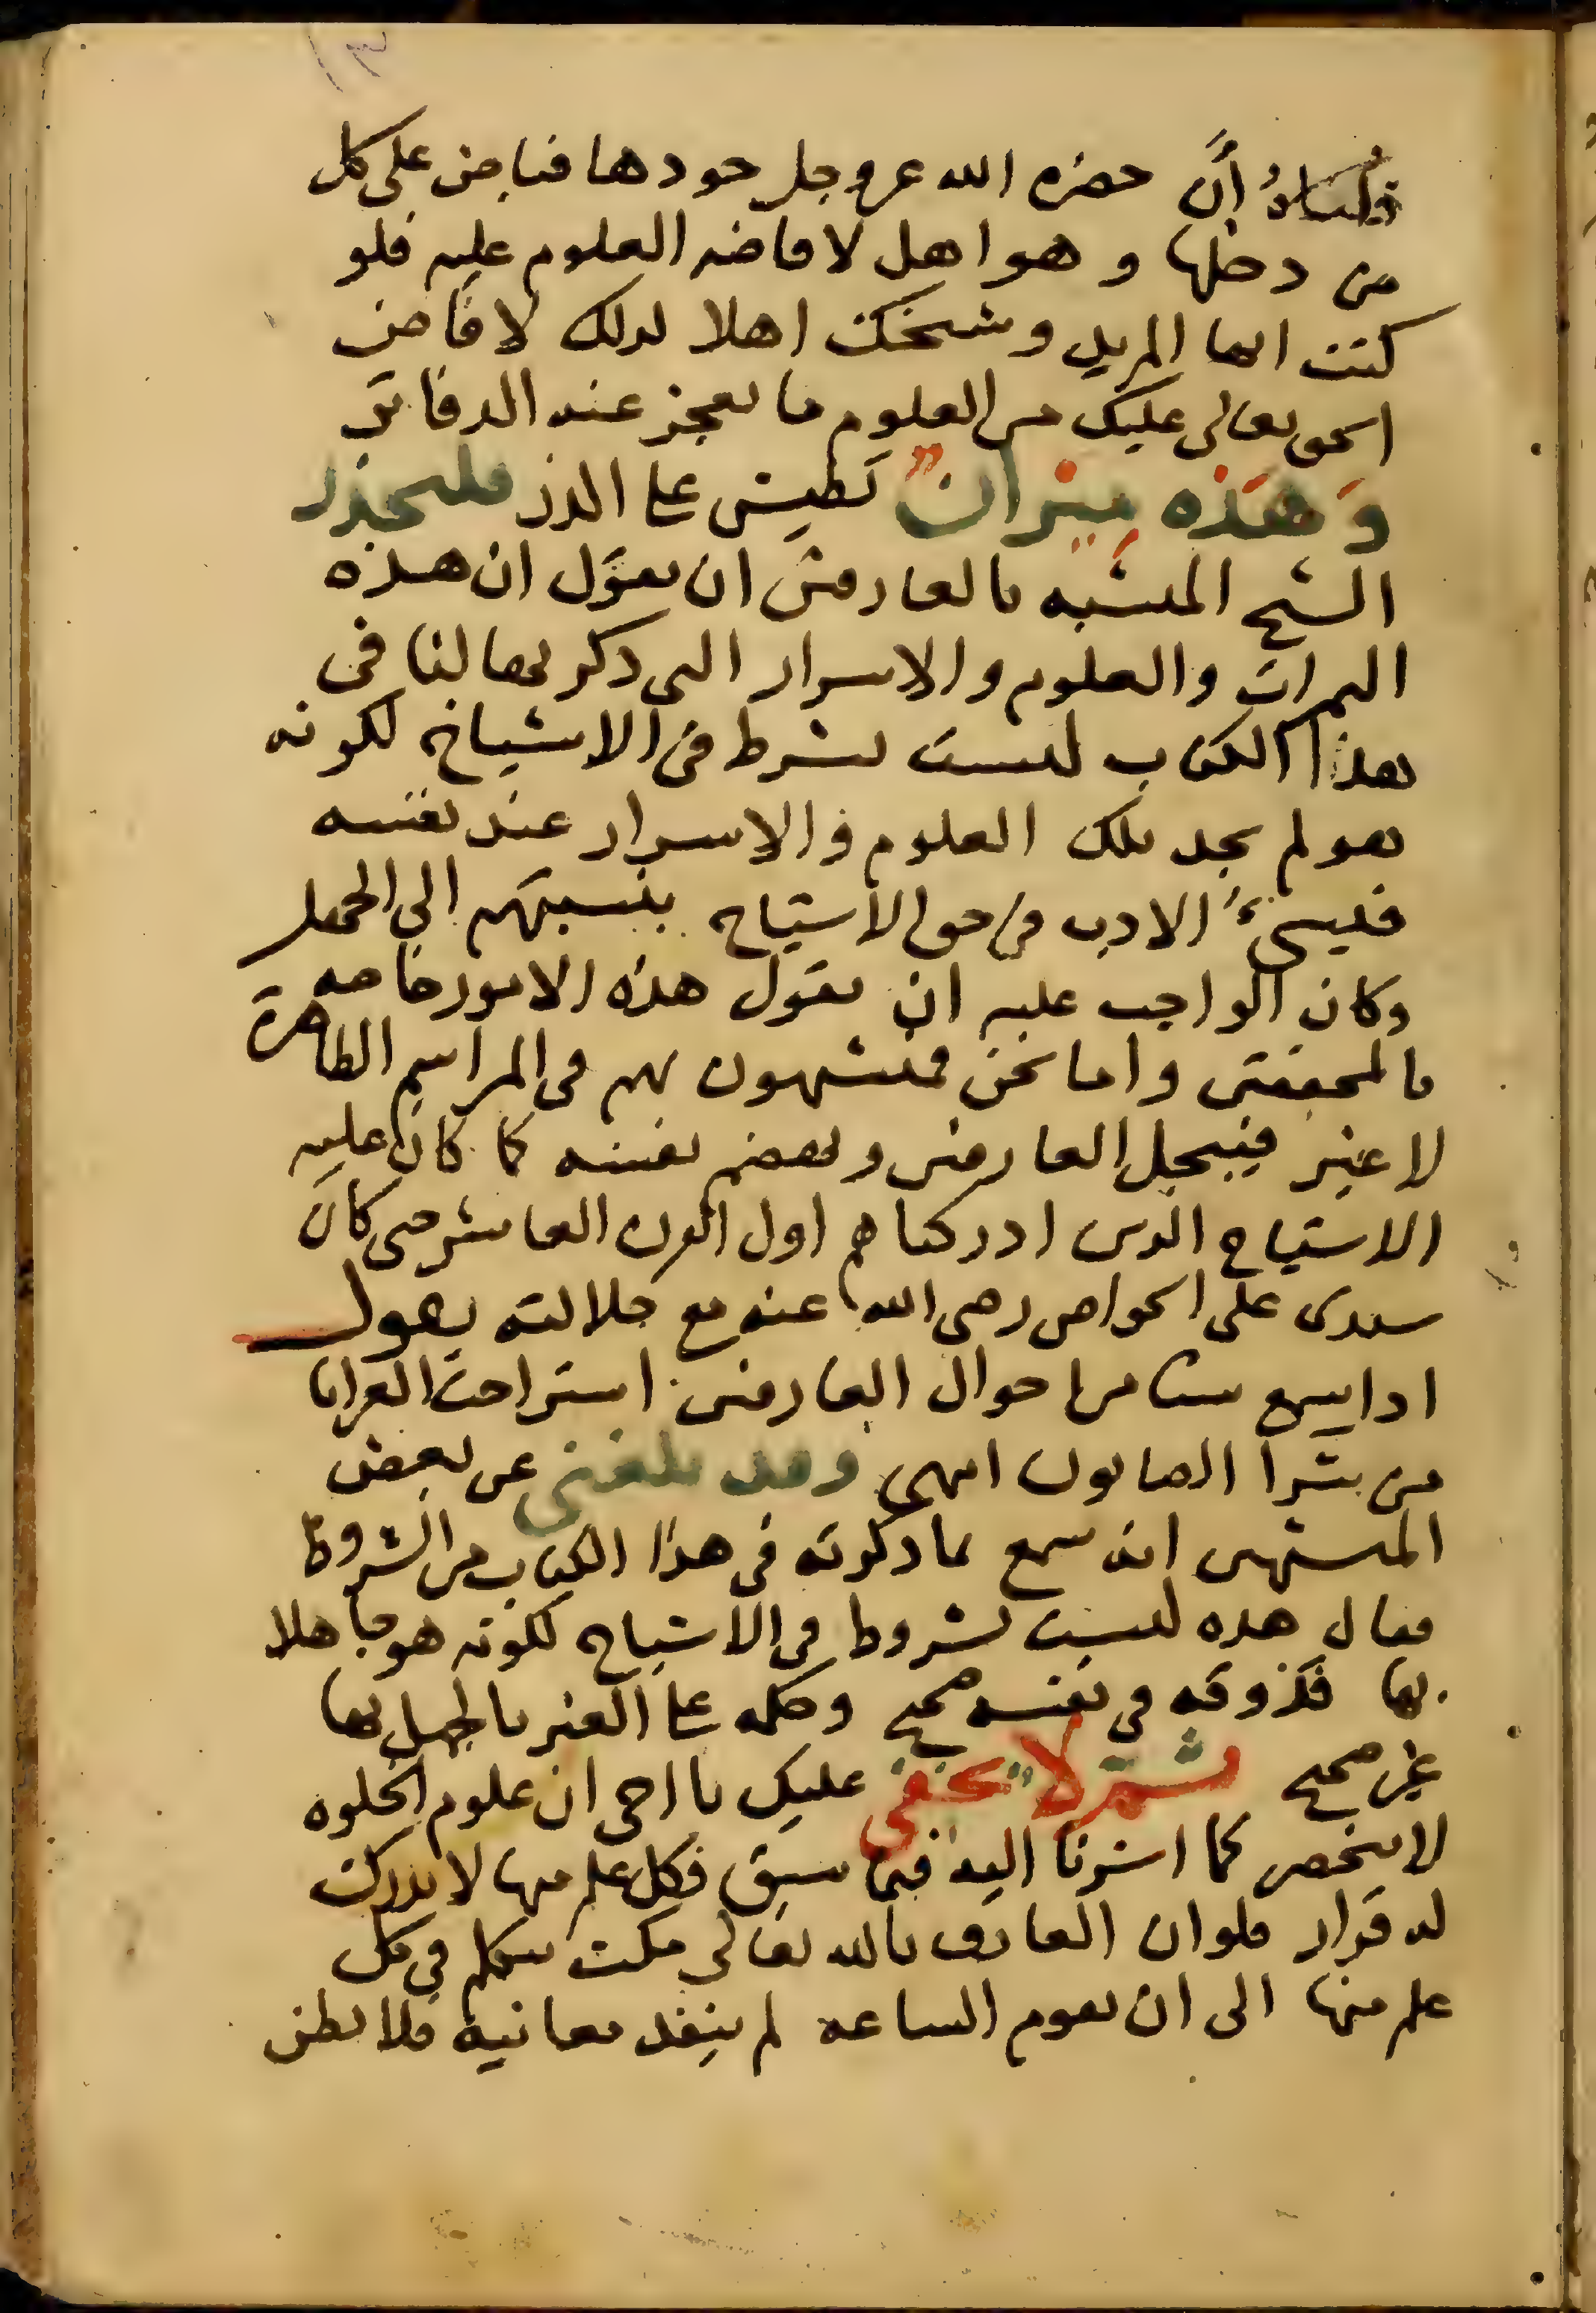 قلناه أنَّ حضره الله عز وجل جودها فياض على كل
من دخلها وهو اهل لافاضه العلوم عليه فلو
كنت ايها المريد وشيخك اهلا لذلك لافاض
الحق تعالى عليك من العلوم ما تعجز عنه الدفاتر
وَهَذه ميزانٌ تطيش على الذر فليحذر
الشيخ المتشبه بالعارفين ان يقول ان هذه
الثمرات والعلوم والاسرار التي ذكرتها لنا في
هذا الكتاب ليست بشرط في الاشياخ لكونه
هو لم يجد تلك العلوم والاسرار عند نفسه
فيسيءُ الادب في حق الاشياخ بنسبتهم الى الجهل
وكان الواجب عليه ان يقول هذه الامور خاصه
بالمحققين واما نحن فمتشبهون بهم في المراسم الظاهرة
لا غير فيبجل العارفين ويهضم نفسه كما كان عليه
الاشياخ الذين ادركناهم اول القرن العاشر حتى كان
سيدى على الخواص رضى الله عنه مع جلالته يقول
اذا سمع شيا من احوال العارفين استراحت العرايا
من شرا الصابون انتهى وقد بلغنى عن بعض
المتشبهين انه سمع بما ذكرته فى هذا الكتاب من الشروط
فقال هذه ليست بشروط في الاشياخ لكونه هو جاهلا
بها فذوقه في نفسه صحيح وحكمه على الغير بالجهل بها
غير صحيح ثم لا يخفى عليك يا اخى ان علوم الخلوه
لا تنحصر كما اشرنا اليه فيما سبق فكل علم منها لا يدرك
له قرار فلو ان العارف بالله تعالى مكث يتكلم في كل
علم منها الى ان تقوم الساعه لم ينفد معانيه فلا تظن